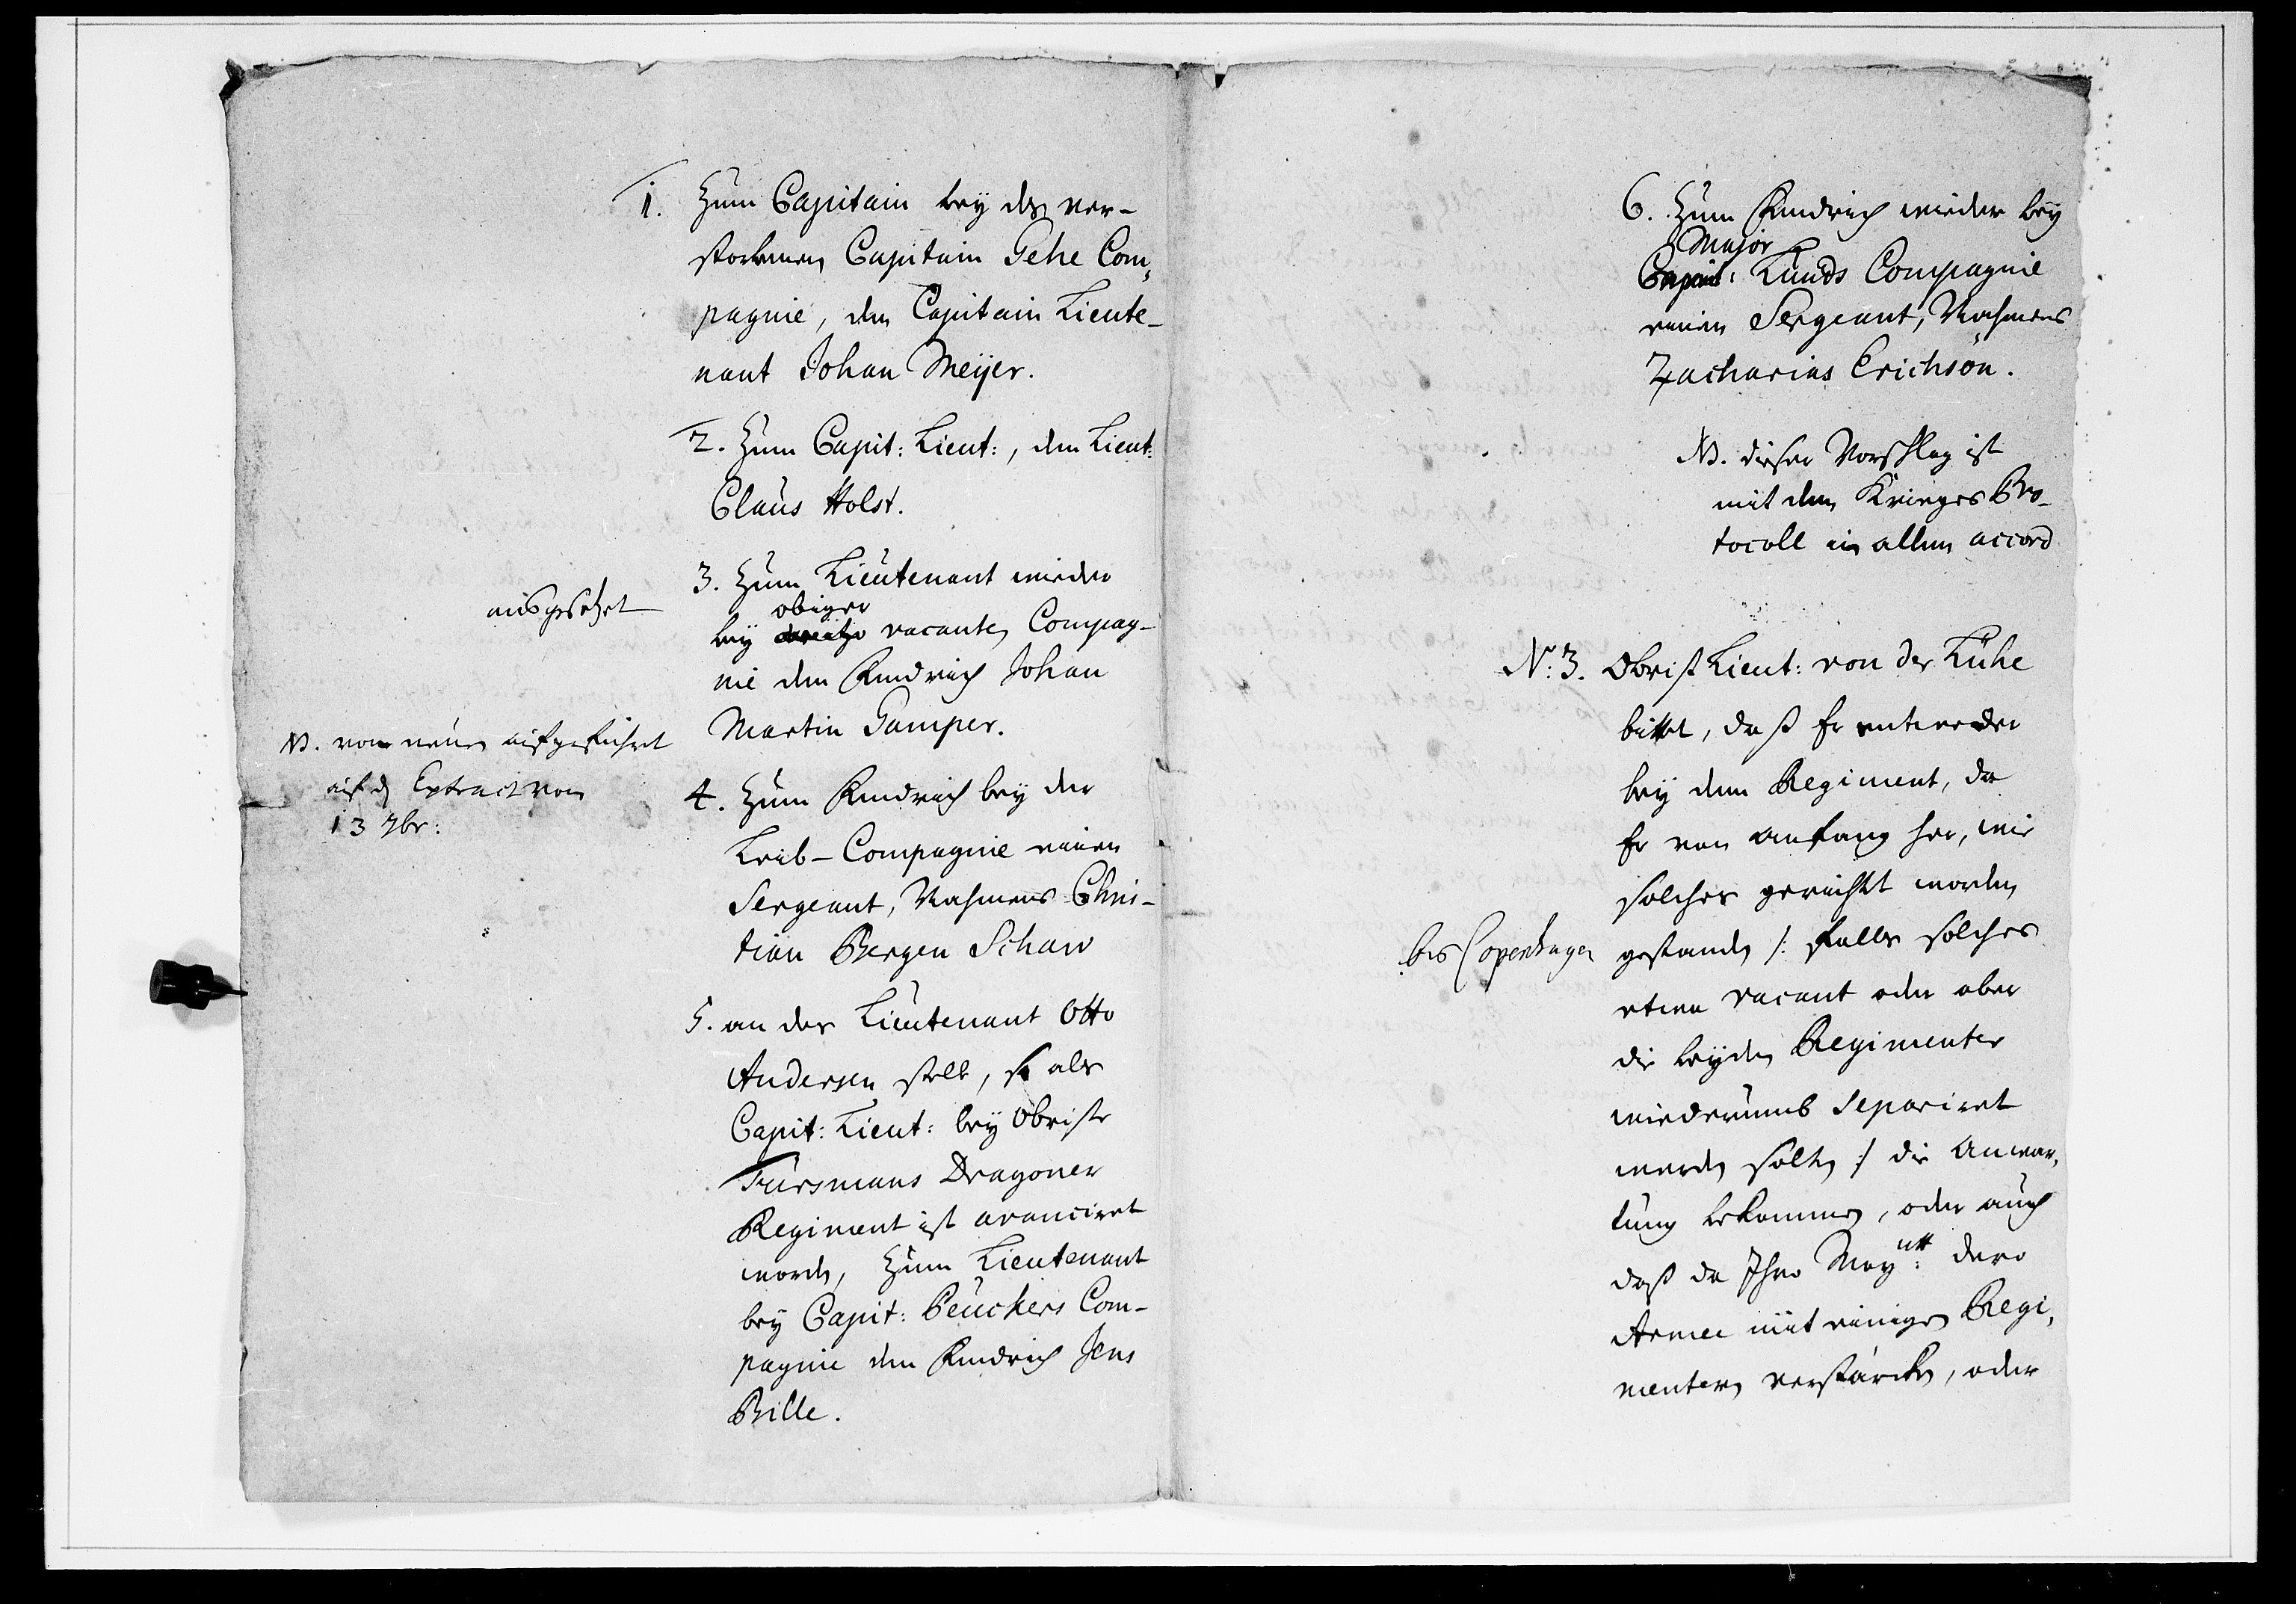 1. Zum Capitain bey des ver-
storbenen Capitain Gehe Com,
pagnie, den Capitain Lieute-
nant Johan Meÿer.
2. Zum Capit: Lieut:, den Lieut:
Claus Holst.
3. Zum Lieutenant wieder
ausgesetzet
obiger
bey vacanten Compag-
nie den Fendrich Johan
Martin Gamper.
NB. von neuen aufgeführet
auf den Extract von
13 7br:
4. Zum Fendrich bey der
Leib-Compagnie einen
Sergeant, Nahmens Chris-
tian Bergen Schaw
5. an des Lieutenant Otto
Andersen stelle, so als
Capit: Lieut: bey Obriste
Fursmans Dragoner
Regiment ist avanciret
worden, Zum Lieutenant
bey Capit: Peuckers Com-
pagnie den Fendrich Jens
Bille.
6. Zum Fendrich wieder bey
Major
Capit: Kunds Compagnie
einen Sergeant, Nahmens
Zacharias Erichson.
NB. dieser Vorschlag ist
mit dem Krieges Pro-
tocoll in allem accord
No: 3. Obrist Lieut: von der Kuhe
bittet, daß Er entweder
bey dem Regiment, da
Er von anfang her, wie
solches gerichtet worden
gestanden /: falls solches
bis Copenhagen
etwa vacant oder aber
die beyden Regimenter
wiederumb separiret
werden solten :/ die Anwar,
tung bekommen, oder auch
daß da Ihro Maytt: dero
Armee mit einigen Regi,
mentern verstärcken, oder